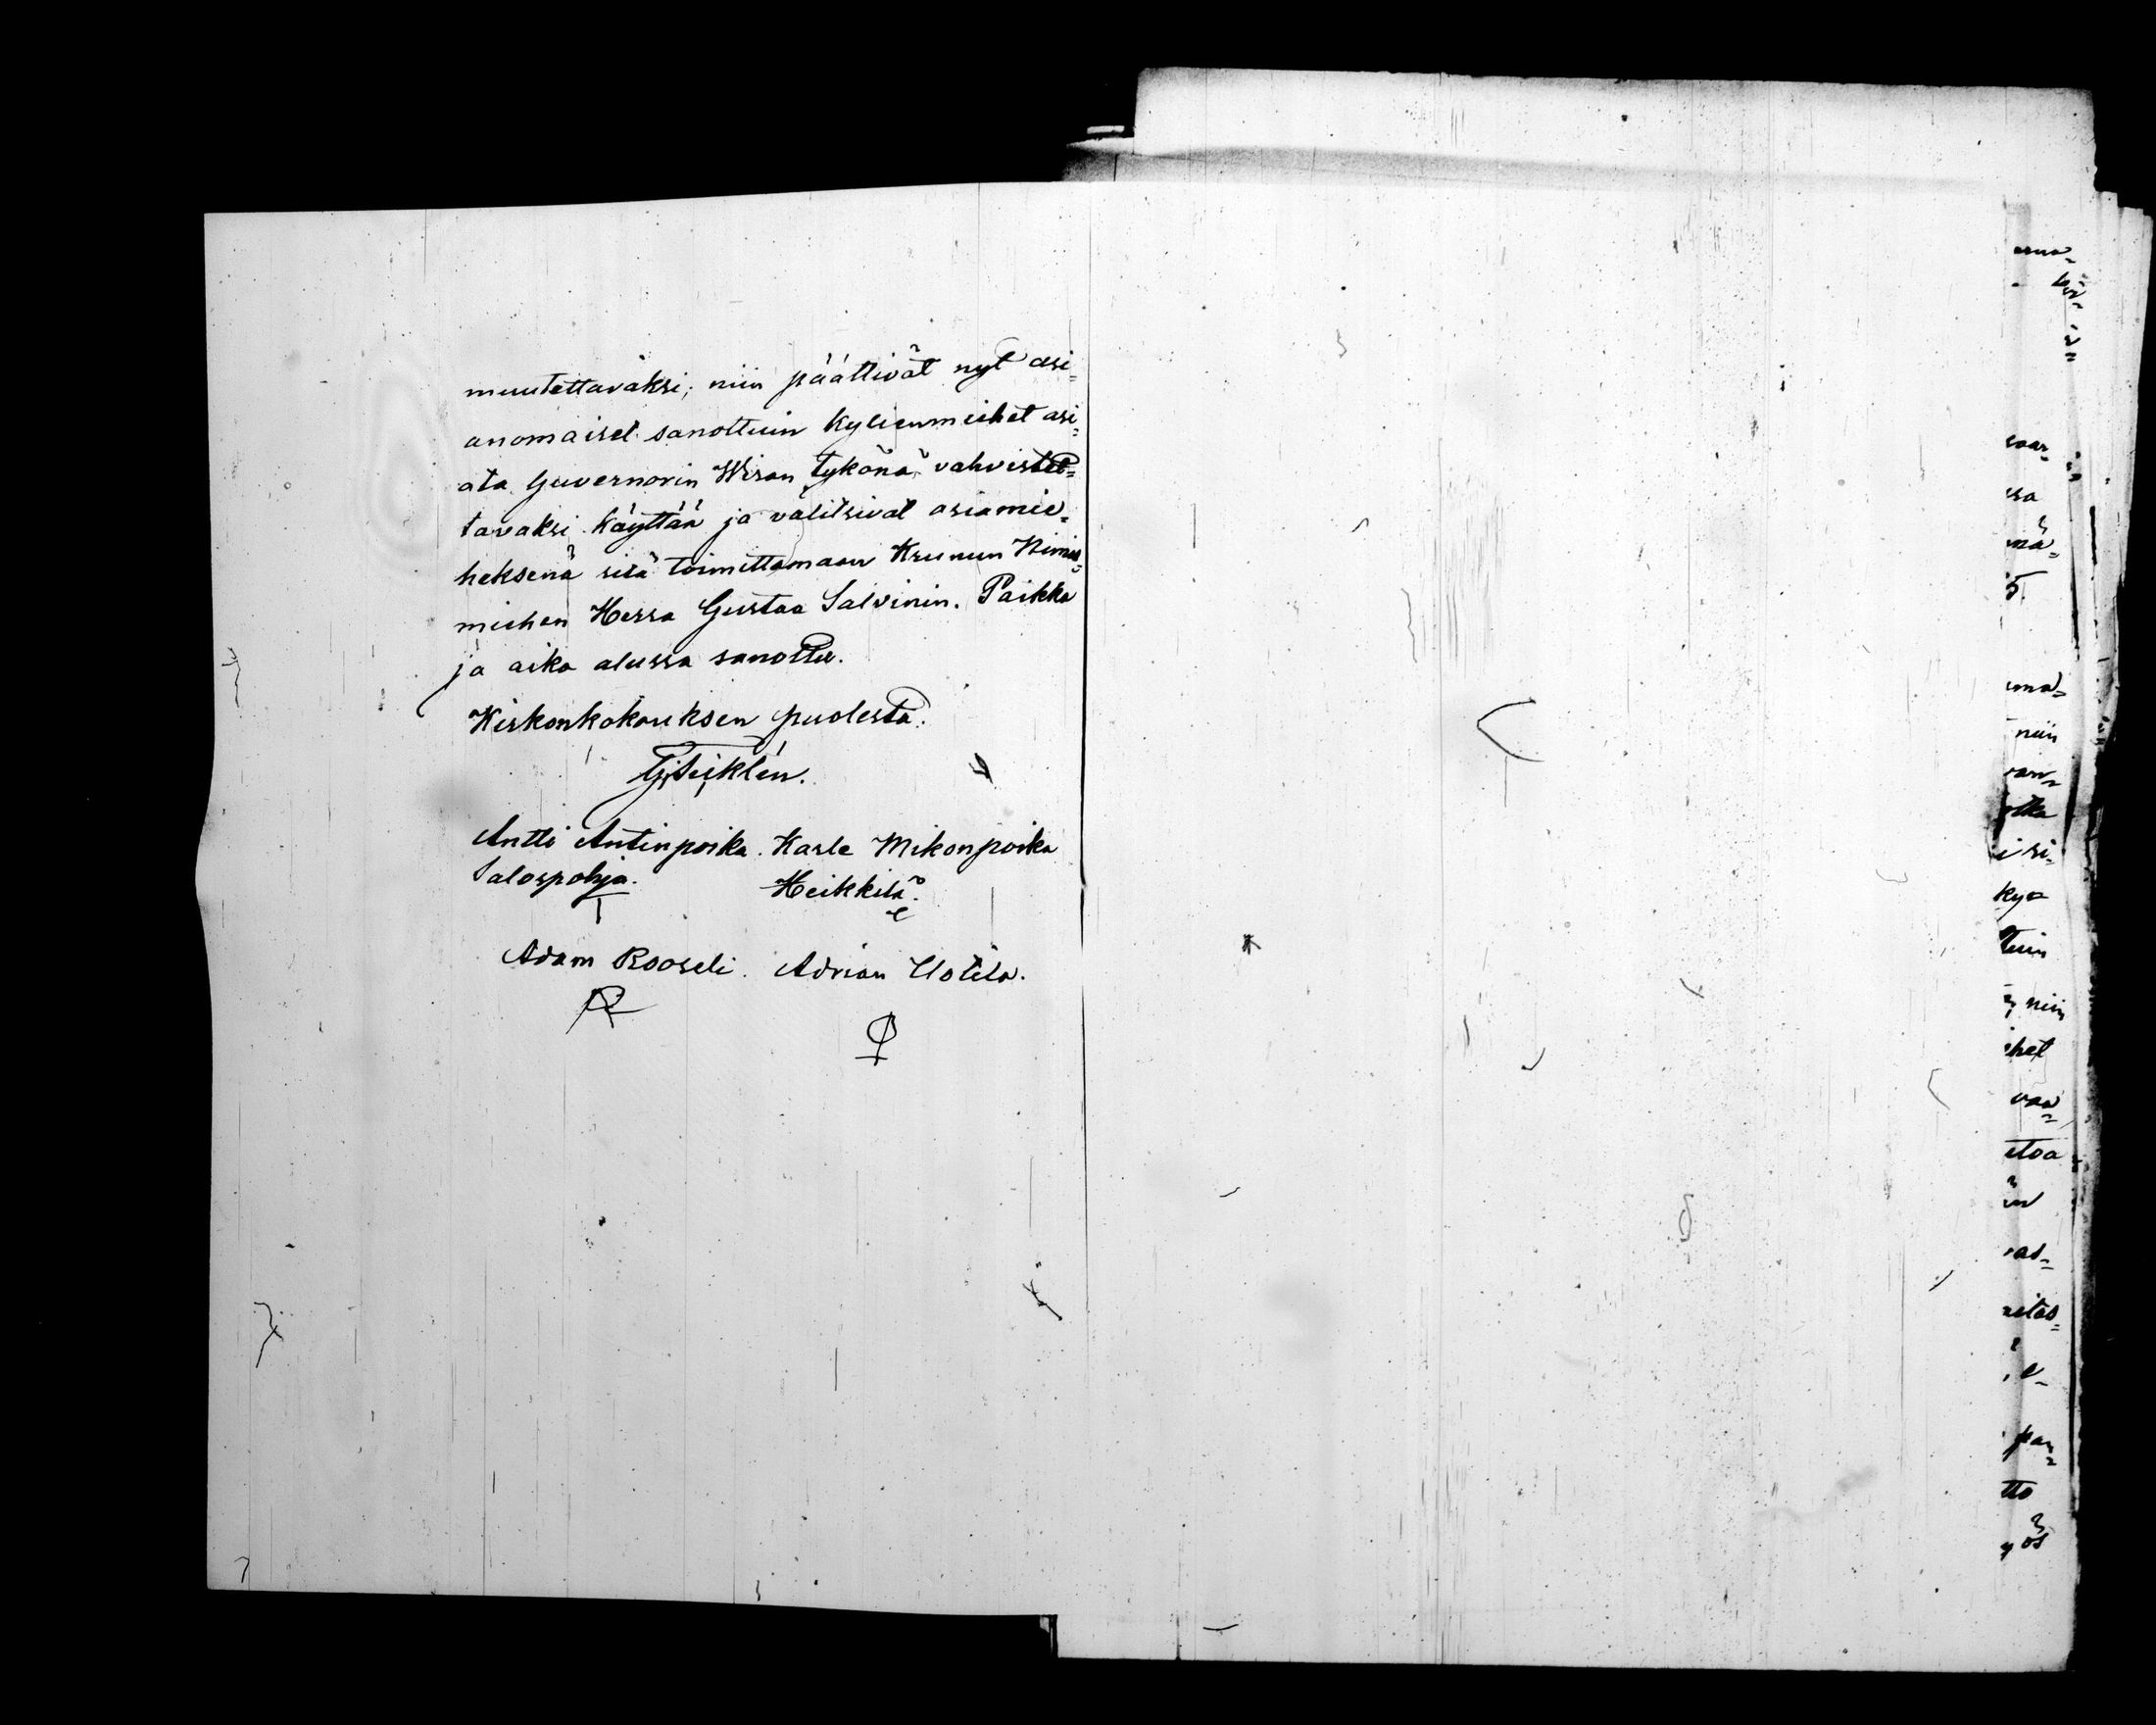 muutettavaksi; niin päättivät nyt asi=
anomaiset sanottuin Kylienmiehet asi=
ata Guvernorin Wiran tykönä vahvistet=
tavaksi käyttää ja valitsivat asiamie=
heksenä sitä toimittamaan Krunun Nimis=
miehen Herra Gustaa Salvinin. Paikka
ja aika alussa sanottu.
Kirkonkokouksen puolesta.
Antti Antinpoika Karle Mikonpoika
Salospohja. Heikkilä.
Adam Rooseli. Adrian Uotila.